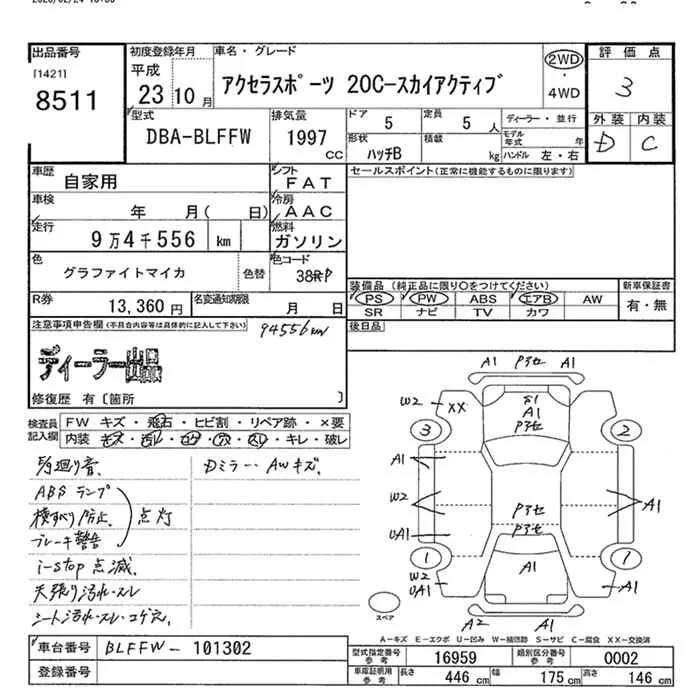 出品番号
[1421]
8511
初度登録年月
平成
23 10 月
車名・グレード
アクセラスポーツ 20C-スカイアクティブ
2WD
・
4WD
評価点
3
外装 内装
D C
型式
DBA-BLFFW
排気量
1997
CC
ドア
5
定員
5 人
形状
ハッチB
積載
kg
ディーラー・並行
モデル
年式 年
ハンドル 左・右
車歴
自家用
シフト
FAT
車検
年 月( 日)
冷房
AAC
走行
9万4千556 km
燃料
ガソリン
色
グラファイトマイカ
色替
色コード
38P
R券
13,360 円
名変通知期限
月 日
セールスポイント(正常に機能するものに限ります)
装備品(純正品に限り○をつけてください)
PS PW ABS エアB AW
SR ナビ TV カワ
新車保証書
有・無
後日品
注意事項申告欄(不具合内容等は具体的に記入して下さい)
94556km
ディーラー出品
修復歴 有〔箇所 〕
検査員
記入欄
FW キズ・飛石・ヒビ割・リペア跡・×要
内装・キズ・汚レ・コゲ・穴・スレ・キレ・破レ
足廻り音、
ABSランプ
横すべり防止
ブレーキ警告
点灯
i-stop 点滅、
天張り汚れ・スレ
シート汚れ・スレ・コゲ穴、
Dミラー・AWキズ、
A1 Pアセ A1
W2 XX
S1
A1
Pアセ
3 2
A1
W2
UA1
A1
Pアセ
Pアセ
1 1
W2
UA1
A1
A1
A2 A1
スペア
A-キズ E-エクボ U-凹み W-補修跡 S-サビ C-腐食 XX-交換済
車台番号
BLFFW-101302
登録番号
型式指定番号
参考
16959
類別区分番号
参考
0002
車庫証明用
参考
長さ 446 cm 幅 175 cm 高さ 146 cm